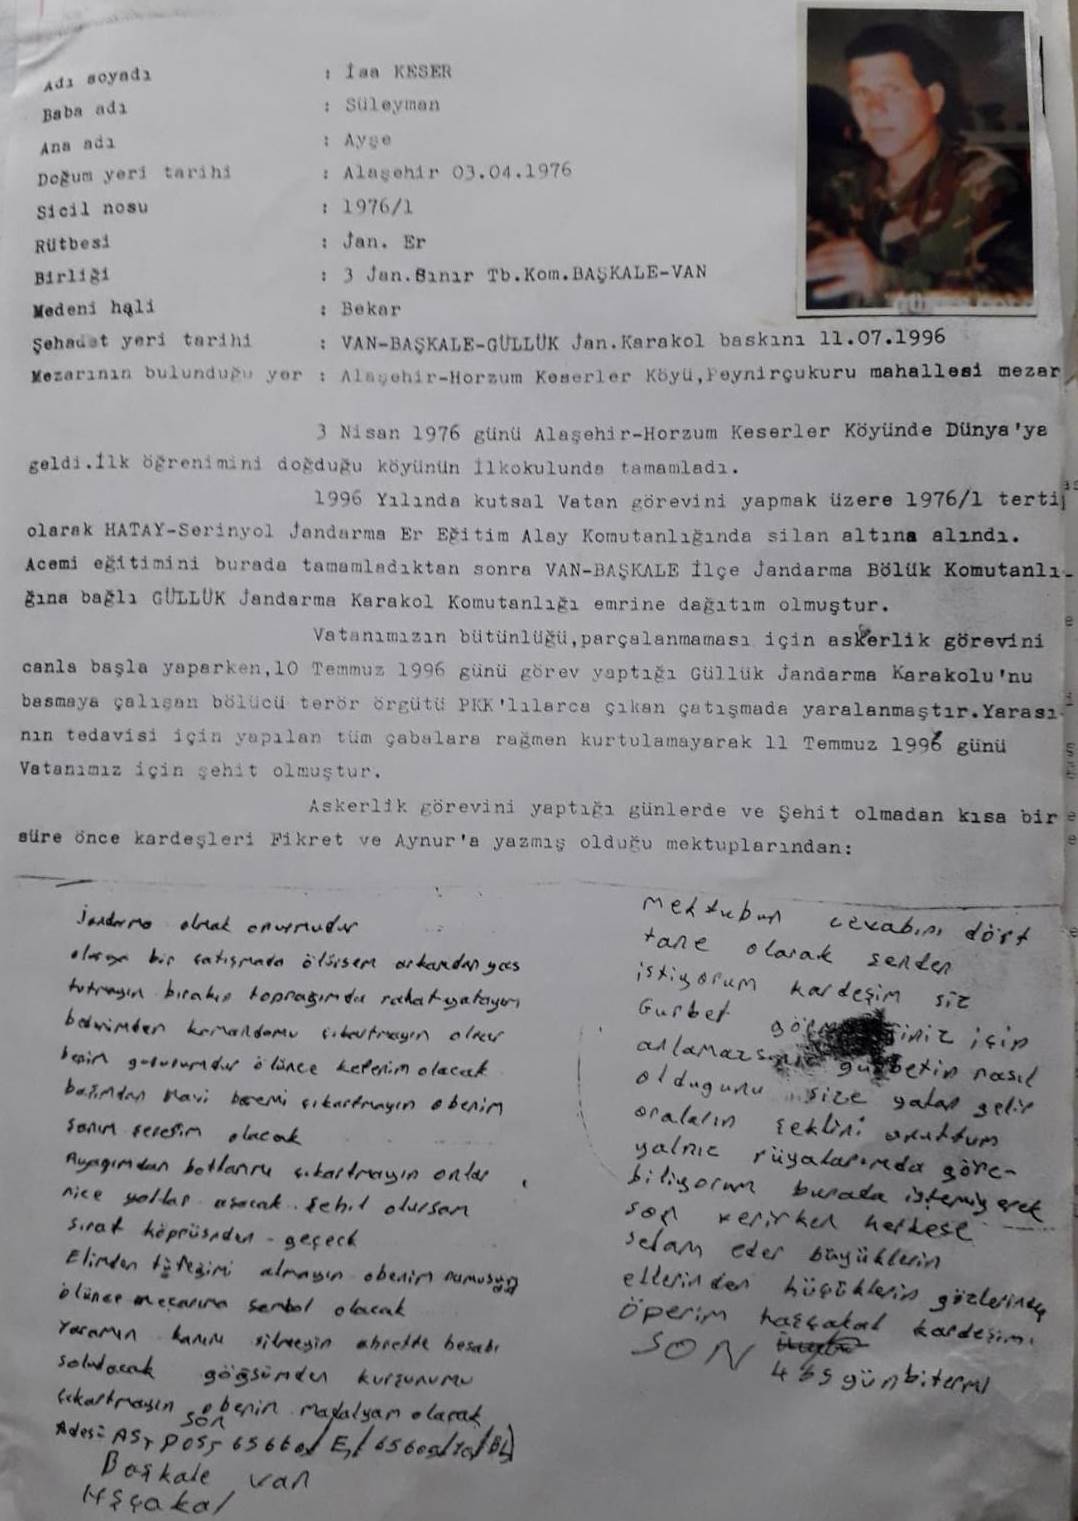 Adı soyadı : İsa KESER
Baba adı : Süleyman
Ana adı : Ayşe
Doğum yeri tarihi : Alaşehir 03.04.1976
Sicil nosu : 1976/1
Rütbesi : Jan. Er
Birliği : 3 Jan.Sınır Tb.Kom.BAŞKALE-VAN
Medeni hali : Bekar
Şehadet yeri tarihi : VAN-BAŞKALE-GÜLLÜK Jan.Karakol baskını 11.07.1996
Mezarının bulunduğu yer : Alaşehir-Horzum Keserler Köyü,Peynirçukuru mahallesi mezar
3 Nisan 1976 günü Alaşehir-Horzum Keserler Köyünde Dünya'ya
geldi.İlk öğrenimini doğduğu köyünün İlkokulunda tamamladı.
1996 Yılında kutsal Vatan görevini yapmak üzere 1976/1 terti
olarak HATAY-Serinyol Jandarma Er Eğitim Alay Komutanlığında silan altına alındı.
Acemi eğitimini burada tamamladıktan sonra VAN-BAŞKALE İlçe Jandarma Bölük Komutanlı-
ğına bağlı GÜLLÜK Jandarma Karakol Komutanlığı emrine dağıtım olmuştur.
Vatanımızın bütünlüğü,parçalanmaması için askerlik görevini
canla başla yaparken,10 Temmuz 1996 günü görev yaptığı Güllük Jandarma Karakolu'nu
basmaya çalışan bölücü terör örgütü PKK'lılarca çıkan çatışmada yaralanmaştır.Yarası-
nın tedavisi için yapılan tüm çabalara rağmen kurtulamayarak 11 Temmuz 1996 günü
Vatanımız için şehit olmuştur.
Askerlik görevini yaptığı günlerde ve Şehit olmadan kısa bir
süre önce kardeşleri Fikret ve Aynur'a yazmış olduğu mektuplarından:
Jandarma olmak onurmudur
olurya bir çatışmada ölürsem arkamdan yas
tutmayın bırakın toprağımda rahat yatayım
belimden kumandamı çıkartmayın olur
benim gururumdur ölünce kefenim olacak
başımdan mavi beremi çıkartmayın obenim
şanım şerefim olacak
Ayağımdan botlarımı çıkartmayın onlar
nice yollar aşacak. Şehit olursam
sırat köprüsünden geçeck
Elimden tüfeğimi almayın obenim namusum
ölünce mezarıma sembol olacak
Yaramın kanını silmeyin ahrette hesabı
sorulacak göğsümden kurşunumu
çıkartmayın obenim madalyam olacak
SON
Ades: AST POST 65660
Başkale van
Mektubun cevabını dört
tane olarak senden
istiyorum kardeşim siz
Gurbet için
gurbetin nasıl
olduğunu size yalan gelir
oraların şeklini unuttum
yalnız rüyalarımda göre-
biliyorum burada istemiyerek
son verirken herkese
selam eder büyüklerin
ellerinden küçüklerin gözlerinden
öperim haşçakal kardeşim.
SON
465 gün biterm